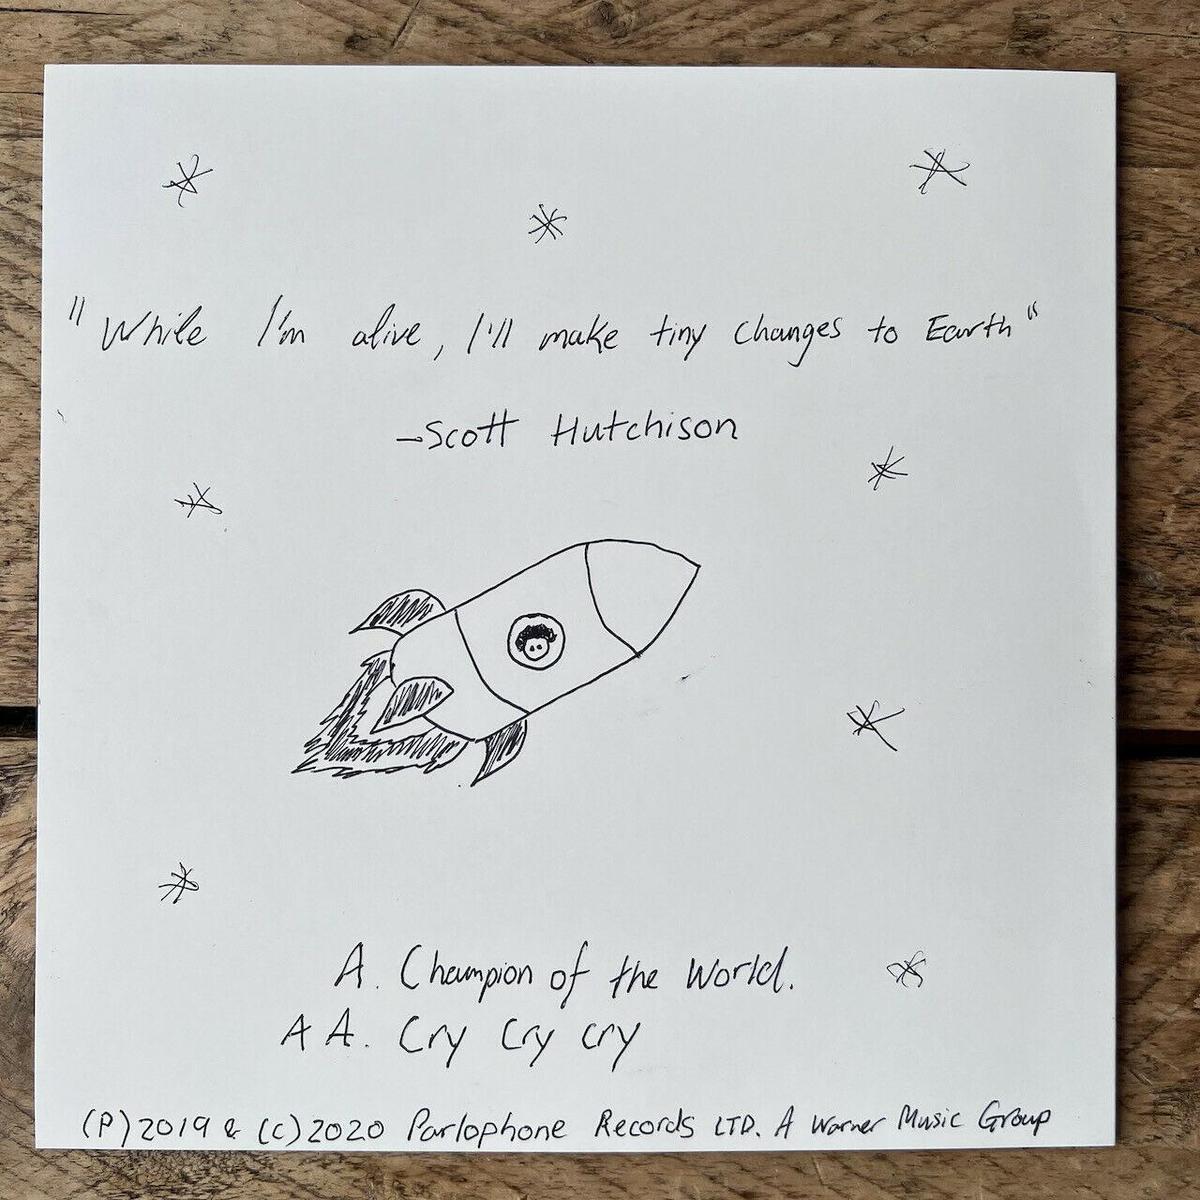 "While I'm alive, I'll make tiny changes to Earth"
-Scott Hutchison
A. Champion of the World.
AA. Cry Cry Cry
(P)2019 & (C)2020 Parlophone Records LTD. A Warner Music Group